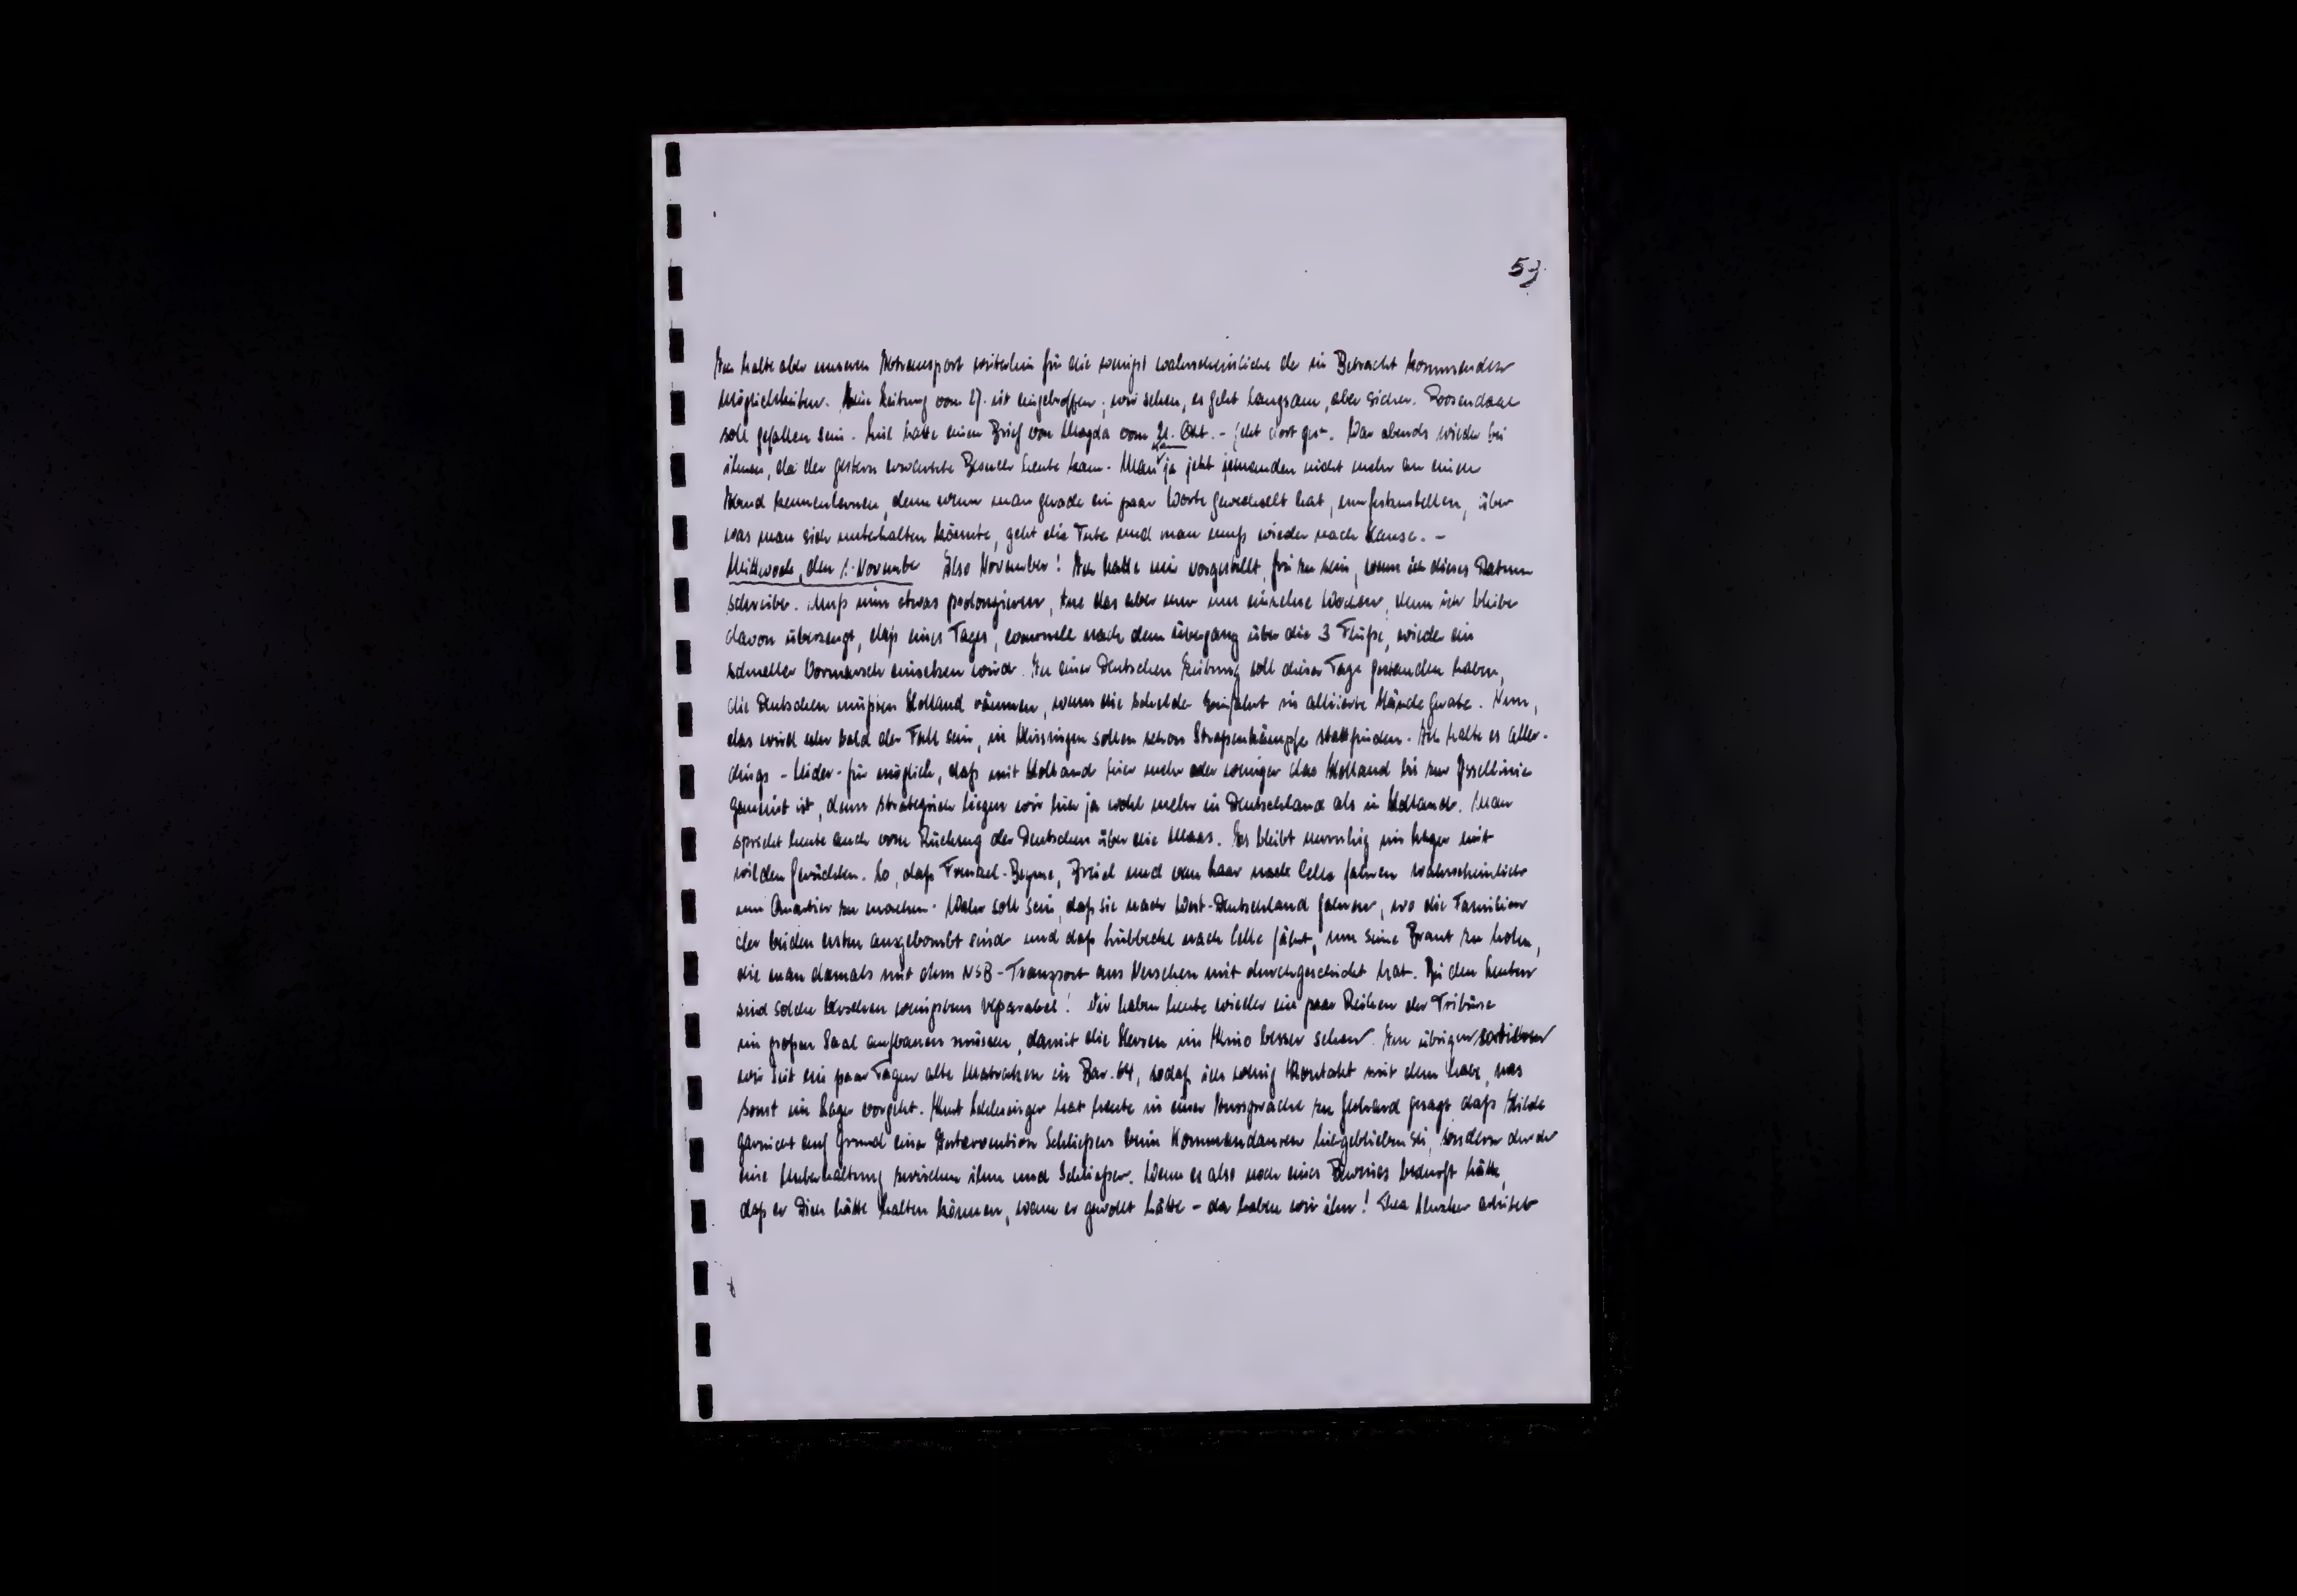 53.
Ich halte aber unseren Abtransport weiterhin für die wenigst wahrscheinliche der in Betracht kommenden
Möglichkeiten. Zeitung vom 27. ist eingetroffen; wir sehen, es geht langsam, aber sicher. Roosendaal
soll gefallen sein. hatte einen Brief von Magda vom 21. Okt. - geht dort gut. War abends wieder bei
ihnen, da der gestern erwartete Besuch heute kam. Man kann ja jetzt jemanden nicht mehr an einem
Abend kennenlernen, denn wenn man gerade ein paar Worte gewechselt hat, um festzustellen, über
was man sich unterhalten könnte, geht die Tute und man muß wieder nach Hause. -
Mittwoch, den 1. November Also November! Ich hatte mir vorgestellt, frei zu sein, wenn ich dieses Datum
schreibe. Muß nun etwas prolongieren, tue das aber nur um einzelne Wochen, denn ich bleibe
davon überzeugt, daß eines Tages, eventuell nach dem Übergang über die 3 Flüße, wieder ein
schneller Vormarsch einsetzen wird. In einer Deutschen Zeitung soll dieser Tage gestanden haben,
die Deutschen müßten Holland räumen, wenn die Schelde Einfahrt in alliierte Hände gerate. Nun,
das wird sehr bald der Fall sein, in Vlissingen sollen schon Straßenkämpfe stattfinden. Ich halte es aller-
dings - leider - für möglich, daß mit Holland hier mehr oder weniger das Holland bis zur Yssellinie
gemeint ist, denn strategisch liegen wir hier ja wohl mehr in Deutschland als in Holland. Man
spricht heute auch vom Rückzug der Deutschen über die Maas. Es bleibt unruhig im Lager mit
wilden Gerüchten. So, daß Frenkel-Beyme, und van Haar nach Celle fahren wahrscheinlich
um Quartier zu machen. Wahr soll sein, daß sie nach West-Deutschland fahren, wo die Familien
der beiden ersten ausgebombt sind und daß Lübbecke nach Celle fährt, um seine Braut zu holen,
die man damals mit dem NSB-Transport aus Versehen mit durchgeschickt hat. Bei den Leuten
sind solche Versehen wenigstens reparabel! Wir haben heute wieder ein paar Reihen der Tribüne
im großen Saal aufbauen müssen, damit die Herren im Kino besser sehen. Im übrigen sortieren
wir seit ein paar Tagen alte Matratzen in Bar. 64, sodaß ich wenig Kontakt mit dem habe, was
sonst im Lager vorgeht. Kurt Schlesinger hat heute in einer Aussprache zu Gebrand gesagt daß Hilde
garnicht auf Grund einer Intervention Schließers beim Kommandanten hiergeblieben sei, sondern durch
eine Unterhaltung zwischen ihm und Schließer. Wenn es also noch eines Beweises bedurft hätte,
daß er Dich hätte halten können, wenn er gewollt hätte - da haben wir ihn! arbeitet